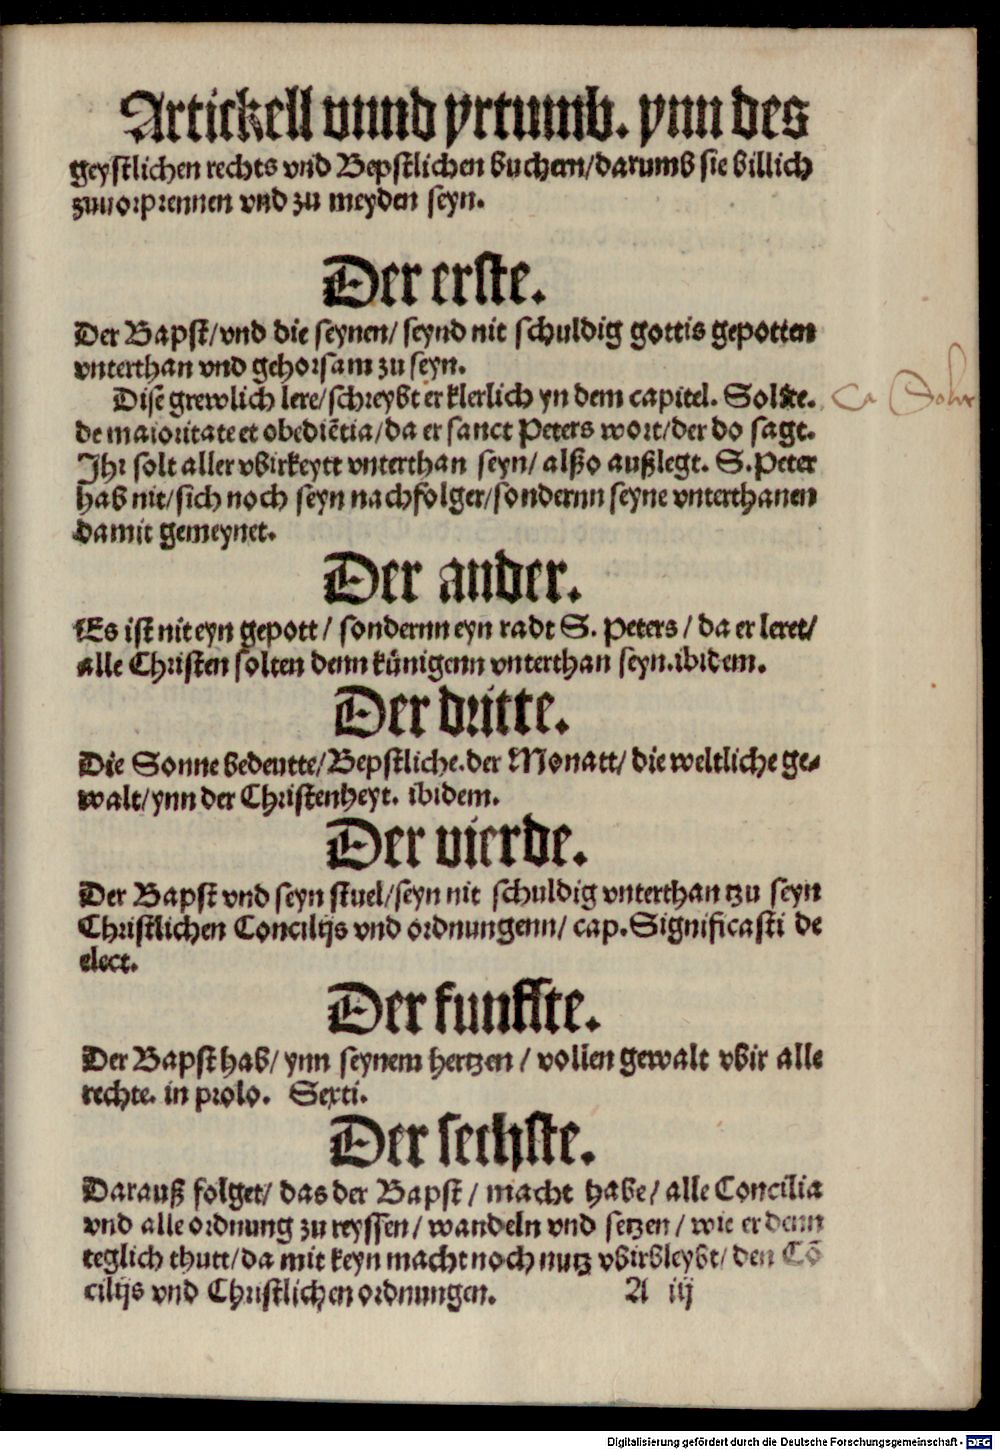 Artickell vnnd yrtumb. ynn des
geystlichen rechts vnd Bepstlichen buchern/darumb sie billich
zuuorprennen vnd zu meyden seyn.
Der erste.
Der Bapst/vnd die seynen/ seynd nit schuldig gottis gepotten
vnterthan vnd gehorsam zu seyn.
Dise grewlich lere/schreybt er klerlich yn dem capitel. Solite.
de maioritate et obediẽtia/da er sanct Peters wort/der do sagt.
Ihr solt aller vbirkeytt vnterthan seyn/ alßo außlegt. S. Peter
hab nit/sich noch seyn nachfolger/sondernn seyne vnterthanen
damit gemeynet.
Der ander.
Es ist nit eyn gepott / sondernn eyn radt S. Peters / da er leret/
alle Christen solten denn künigenn vnterthan seyn.ibidem.
Der dritte.
Die Sonne bedeutte/Bepstliche.der Monatt/ die weltliche ge-
walt/ynn der Christenheyt. ibidem.
Der vierde.
Der Bapst vnd seyn stuel/seyn nit schuldig vnterthan tzu seyn
Christlichen Concilijs vnd ordnungenn/ cap. Significasti de
elect.
Der funffte.
Der Bapst hab/ ynn seynem hertzen / vollen gewalt vbir alle
rechte. in prolo. Sexti.
Der sechste.
Darauß folget/ das der Bapst / macht habe/ alle Concilia
vnd alle ordnung zu reyssen/ wandeln vnd setzen / wie er denn
teglich thutt/da mit keyn macht noch nutz vbirbleybt/ den Cõ
cilijs vnd Christlichen ordnungen. A iij
Digitalisierung gefördert durch die Deutsche Forschungsgemeinschaft - DFG